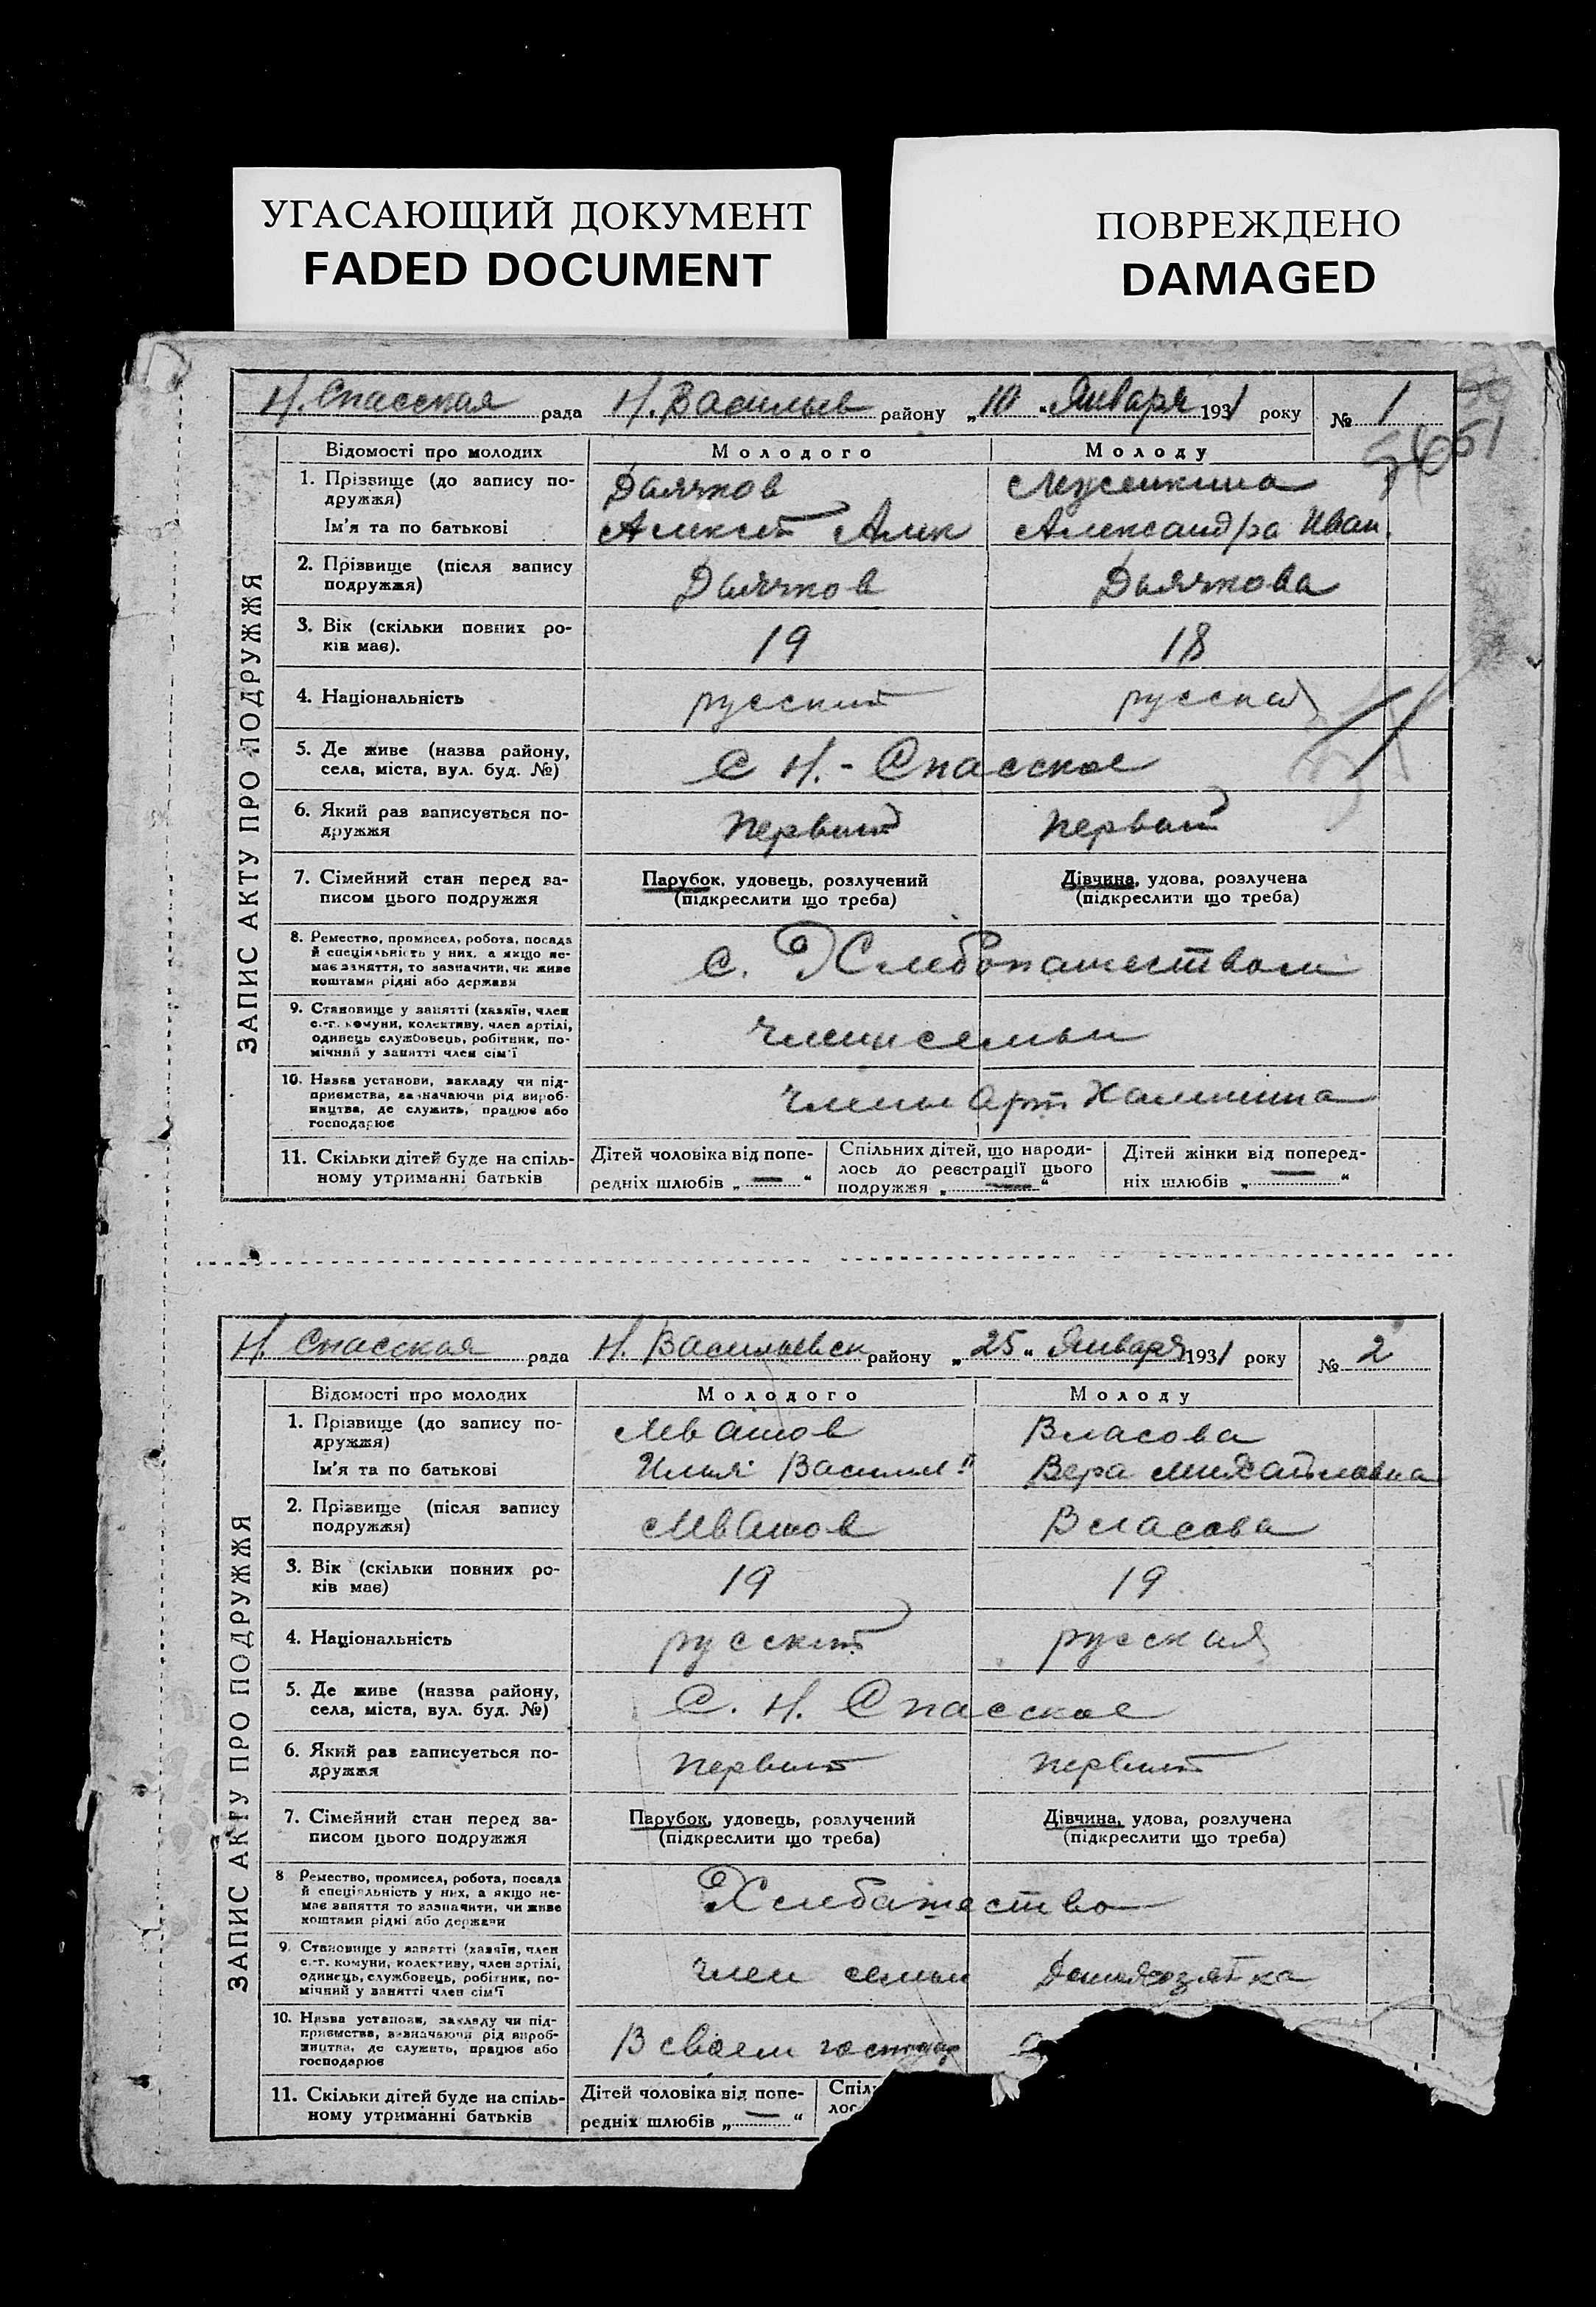 УГАСАЮЩИЙ ДОКУМЕНТ
FADED DOCUMENT
ПОВРЕЖДЕНО
DAMAGED
Н. Спасская рада Н. Васильев району „10“ Января 1931 року № 1
51
ЗАПИС АКТУ ПРО ПОДРУЖЖЯ
Відомості про молодих Молодого Молоду
1. Прізвище (до запису по-
дружжя) Дьячков
Ім'я та по батькові Алексей Алек Александра Иван.
2. Прізвище (після запису
подружжя) Дьячков Дьячкова
3. Вік (скільки повних ро-
ків має). 19 18
4. Національність русский русская
5. Де живе (назва району,
села, міста, вул. буд. №) С Н.-Спасское
6. Який раз записується по-
дружжя первый первый
7. Сімейний стан перед за-
писом цього подружжя
Парубок, удовець, розлучений
(підкреслити що треба)
Дівчина, удова, розлучена
(підкреслити що треба)
8. Ремество, промисел, робота, посада
й спеціяльність у них, а якщо не-
має заняття, то зазначити, чи живе
коштами рідні або держави
С. Хлебопашеством
9. Становище у занятті (хазяїн, член
с.-г. комуни, колективу, член артілі,
одинець службовець, робітник, по-
мічний у занятті член сім'ї
члены семьи
10. Назва установи, закладу чи під-
приємства, зазначаючи рід вироб-
ництва, де служить, працює або
господарює
члены Арт. Калинина
11. Скільки дітей буде на спіль-
ному утриманні батьків
Дітей чоловіка від попе-
редніх шлюбів „—“
Спільних дітей, що народи-
лось до реєстрації цього
подружжя „—“
Дітей жінки від поперед-
ніх шлюбів „—“
Н. Спасская рада Н. Васильевск району „25“ Января 1931 року № 2
ЗАПИС АКТУ ПРО ПОДРУЖЖЯ
Відомості про молодих Молодого Молоду
1. Прізвище (до запису по-
дружжя) Власова
Ім'я та по батькові Илья Васильев. Вера Михайловна
2. Прізвище (після запису
подружжя) Власова
3. Вік (скільки повних ро-
ків має) 19 19
4. Національність русский русская
5. Де живе (назва району,
села, міста, вул. буд. №) С. Н. Спасское
6. Який раз записується по-
дружжя первый первый
7. Сімейний стан перед за-
писом цього подружжя
Парубок, удовець, розлучений
(підкреслити що треба)
Дівчина, удова, розлучена
(підкреслити що треба)
8 Ремество, промисел, робота, посада
й спеціяльність у них, а якщо не-
має заняття то зазначити, чи живе
коштами рідні або держави
9. Становище у занятті (хазяїн, член
с.-г. комуни, колективу, член артілі,
одинець, службовець, робітник, по-
мічний у занятті член сім'ї
член семьи Домохозяйка
10. Назва установи, закладу чи під-
приємства, зазначаючи рід вироб-
ництва, де служить, працює або
господарює
В своем господар
11. Скільки дітей буде на спіль-
ному утриманні батьків
Дітей чоловіка від попе-
редніх шлюбів „—“
Спіль
лос